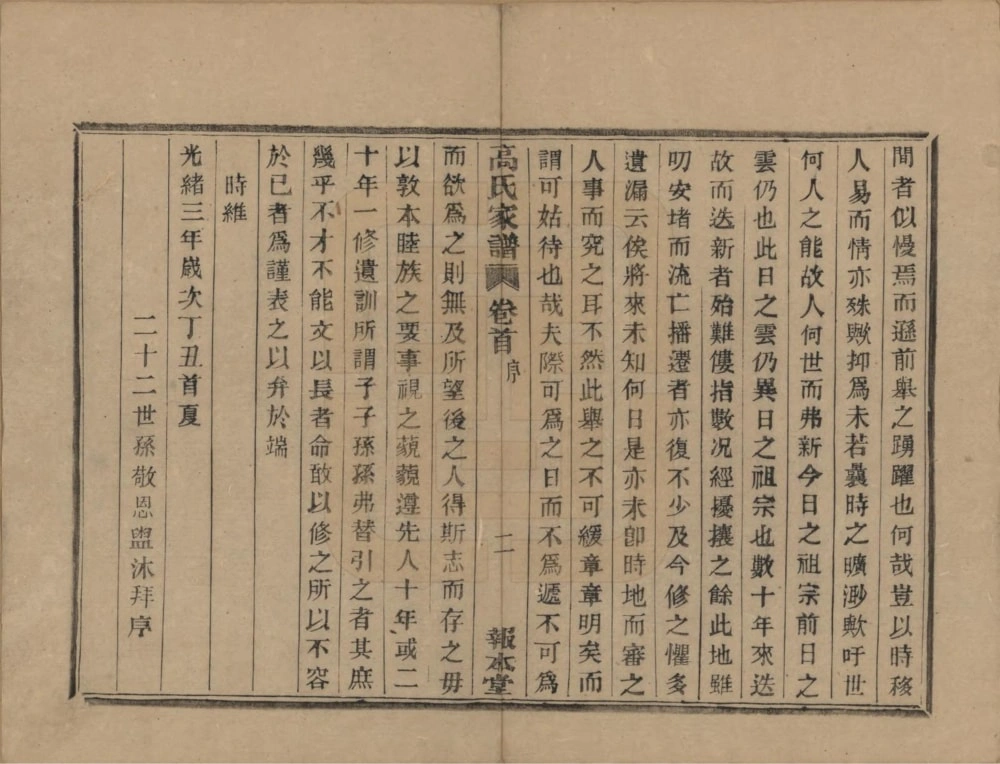 間者似慢焉而遜前舉之踴躍也何哉豈以時移
人易而情亦殊歟抑為未若曩時之曠渺歟吁世
何人之能故人何世而弗新今日之祖宗前日之
雲仍也此日之雲仍異日之祖宗也數十年來迭
故而迭新者殆難僂指數况經擾攘之餘此地雖
叨安堵而流亡播遷者亦復不少及今修之懼多
遺漏云俟將來未知何日是亦未卽時地而審之
人事而究之耳不然此舉之不可緩章章明矣而
謂可姑待也哉夫際可為之日而不為遞不可為
高氏家譜 卷首 序 二 報本堂
而欲為之則無及所望後之人得斯志而存之毋
以敦本睦族之要事視之藐藐遵先人十年或二
十年一修遺訓所謂子子孫孫弗替引之者其庶
幾乎不才不能文以長者命敢以修之所以不容
於已者為謹表之以弁於端
時維
光緒三年歲次丁丑首夏
二十二世孫敬恩盥沐拜序